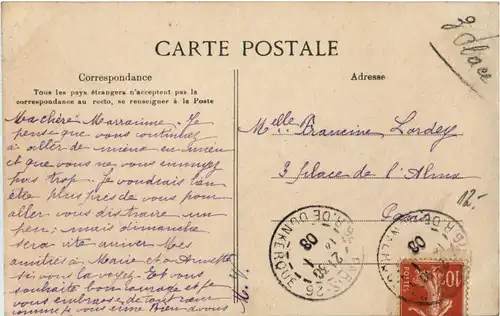 CARTE POSTALE
Correspondance
Tous les pays étrangers n'acceptent pas la
correspondance au recto, se renseigner à la Poste
Ma chère Marraine. Je
pense que vous continuez
à aller de mieux en mieux
et que vous ne vous ennuyez
pas trop. Je voudrais bien
être plus près de vous pour
aller vous distraire un
peu; mais dimanche
sera vite arrivé. Mes
amitiés à Marie et à
si vous la voyez. Et vous
souhaite bon courage et je
vous embrasse de tout
comme je vous aime. Bien à vous
M. V.
Adresse
Place
Melle Francine Lordey
3 place de l'Alma
Paris
12.-
PARIS-26
R. DE DUNKERQUE
08
R. DE DUNKERQUE
08
10
POSTES